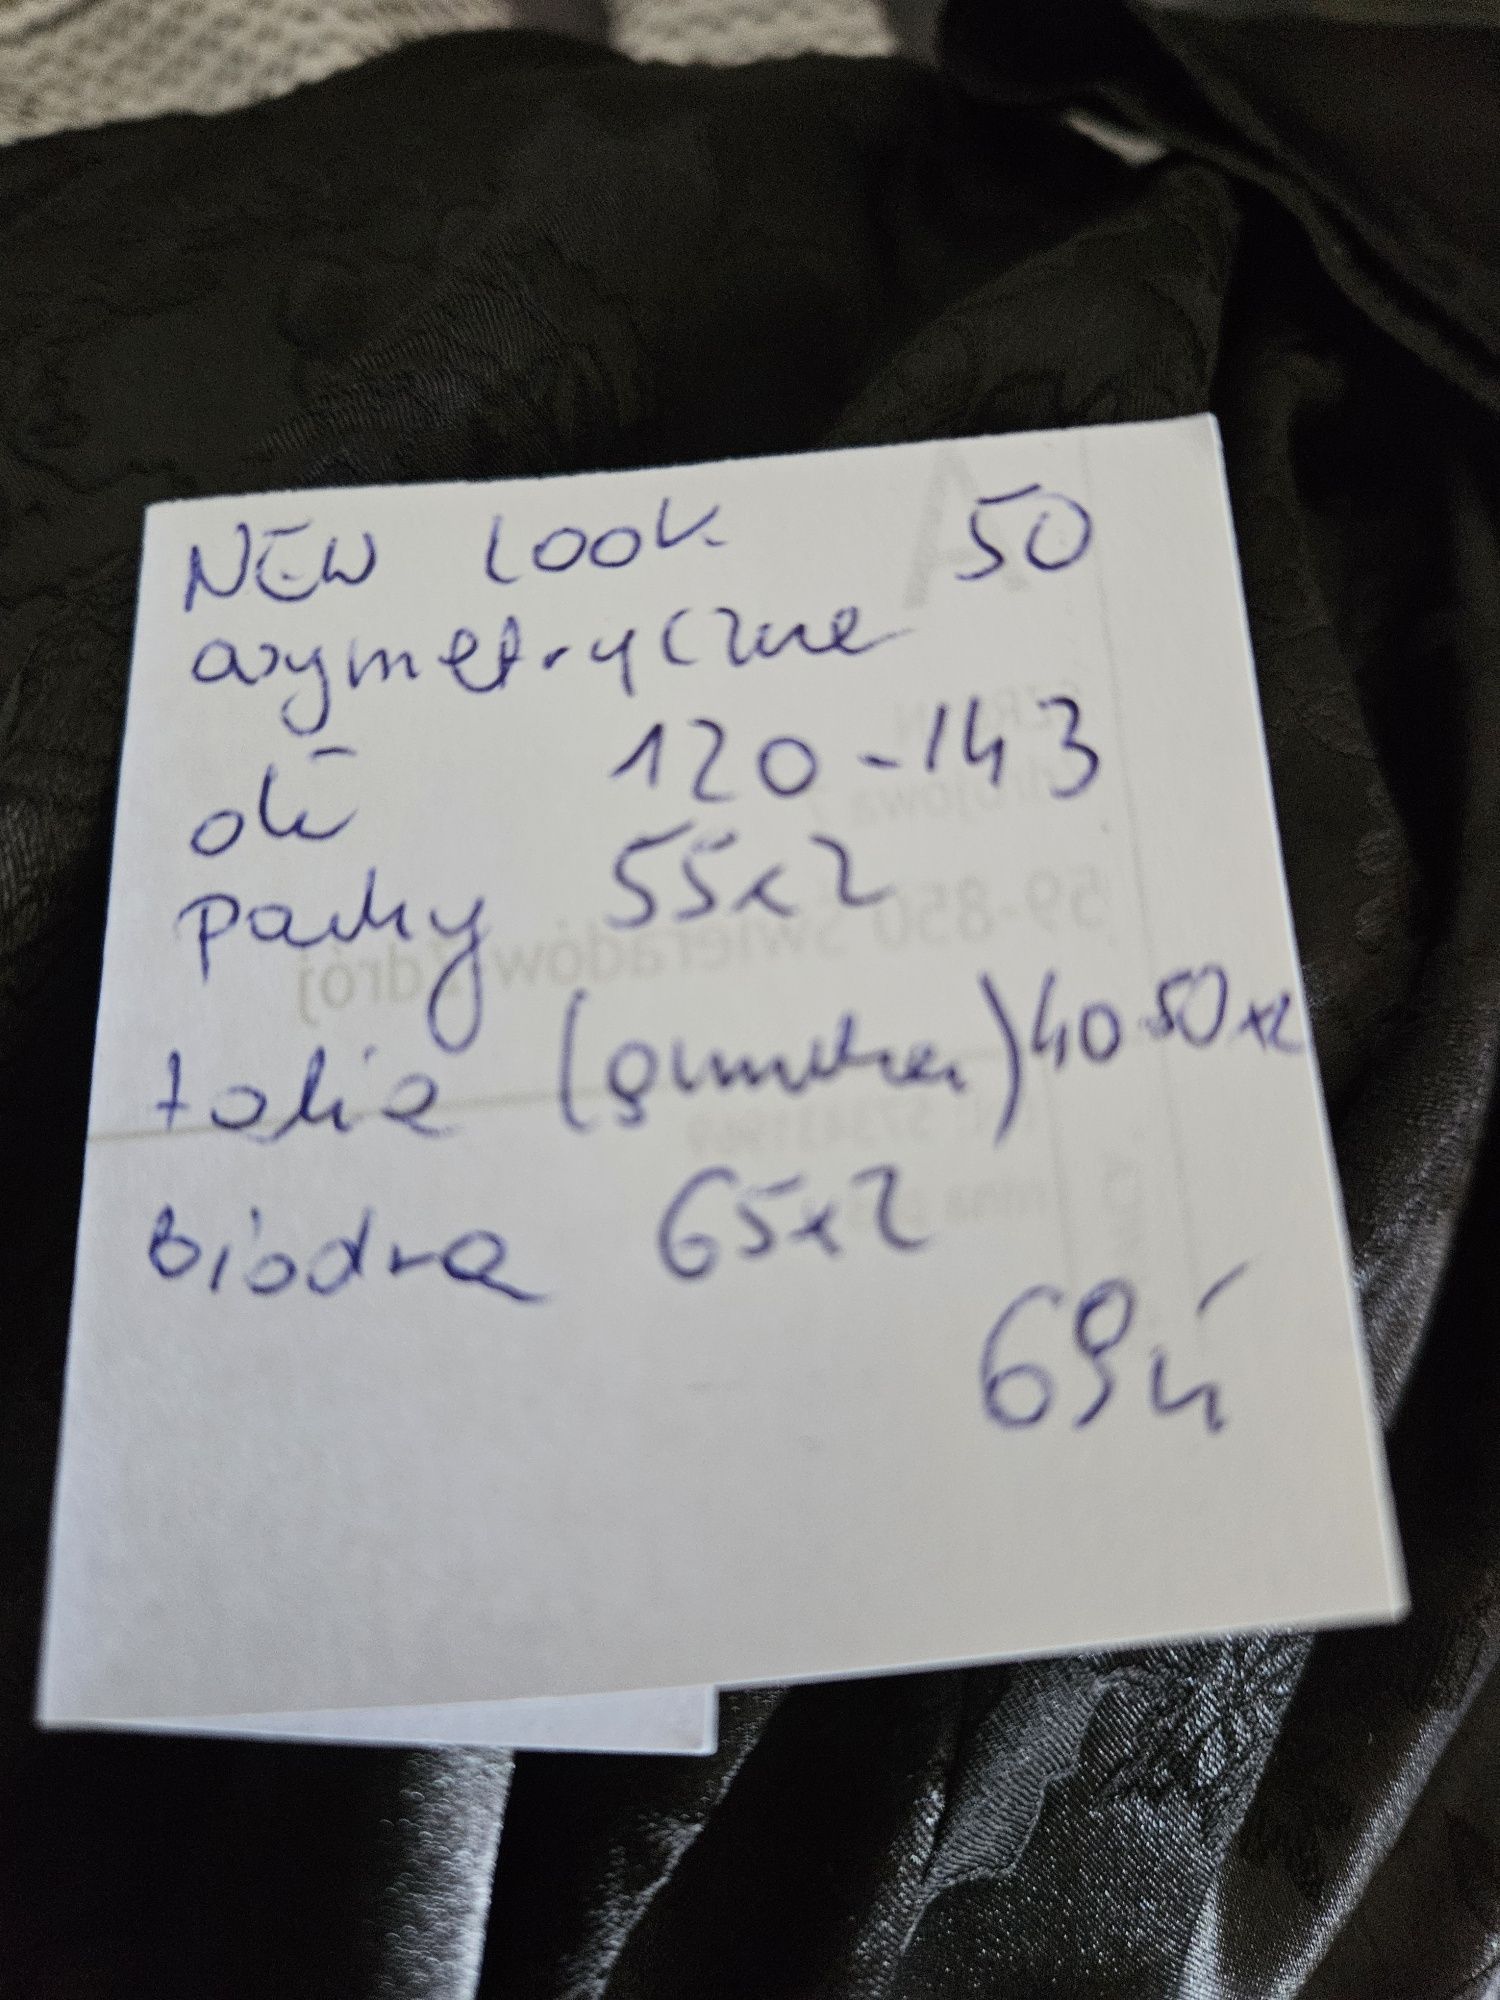 NEW LOOK 50
asymetryczne
dł 120-143
pachy 55x2
talia (gumka) 40-50x2
biodra 65x2
69zł
59-850 Świeradów Zdrój